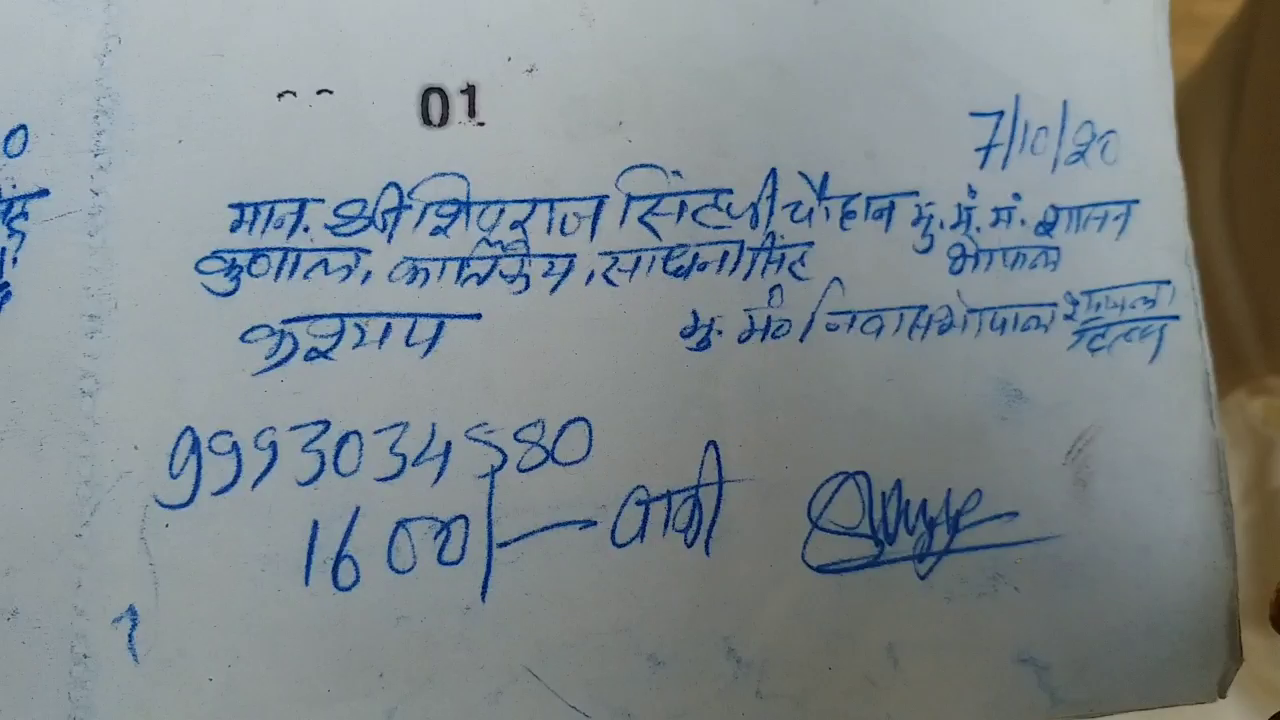 01
7/10/20
मान. श्री शिवराज सिंह जी चौहान मु. मं. मं. शासन
कुणाल, कार्तिकेय, साधना सिंह भोपाल
कश्यप मु. मं० निवास भोपाल
9993034580
1600/— बाकी